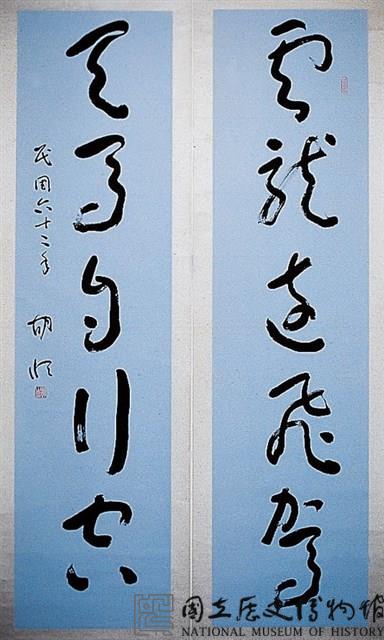 雲龍遠飛駕
天馬自行空
民國六十二年 胡
國立歷史博物館
NATIONAL MUSEUM OF HISTORY